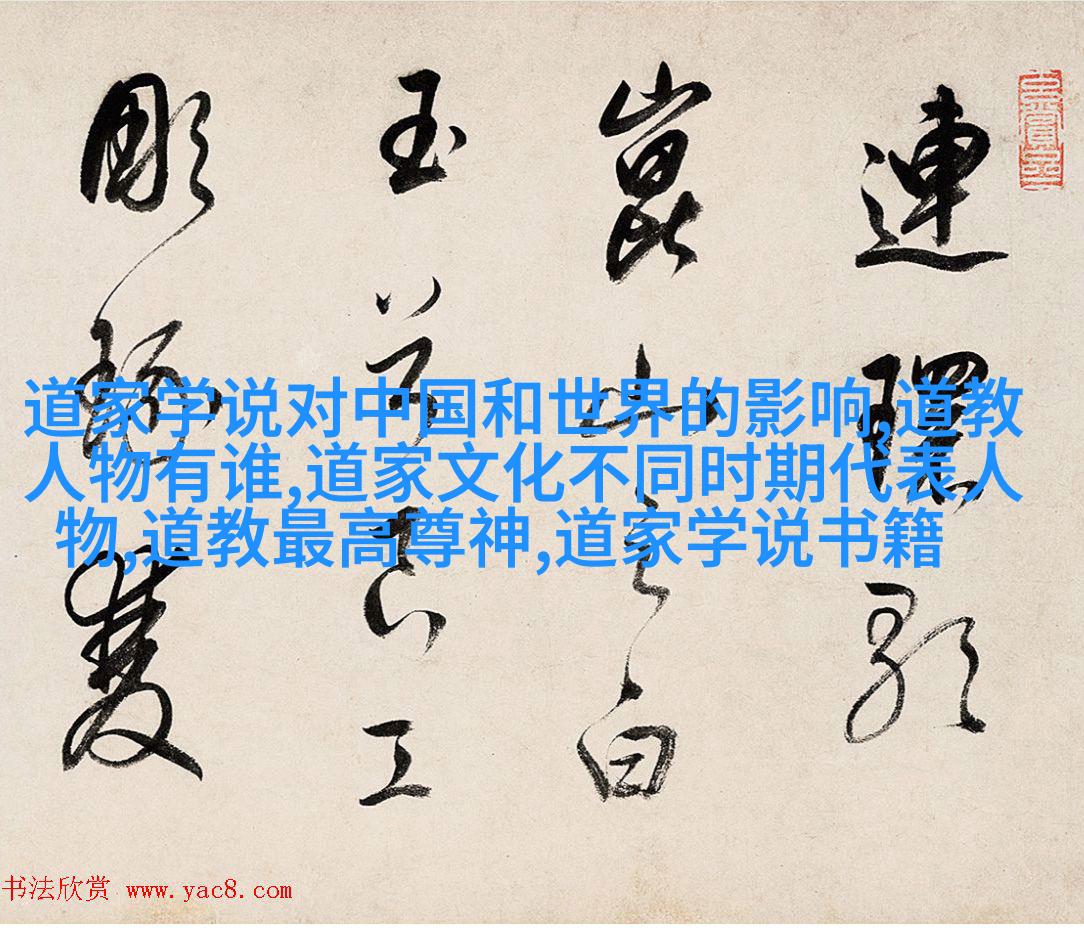 道家学说对中国和世界的影响,道教
人物有谁,道家文化不同时期代表人
物,道教最高尊神,道家学说书籍
連環歌
崑山之白
玉兮工
彫琢雙
书法欣赏 www.yac8.com